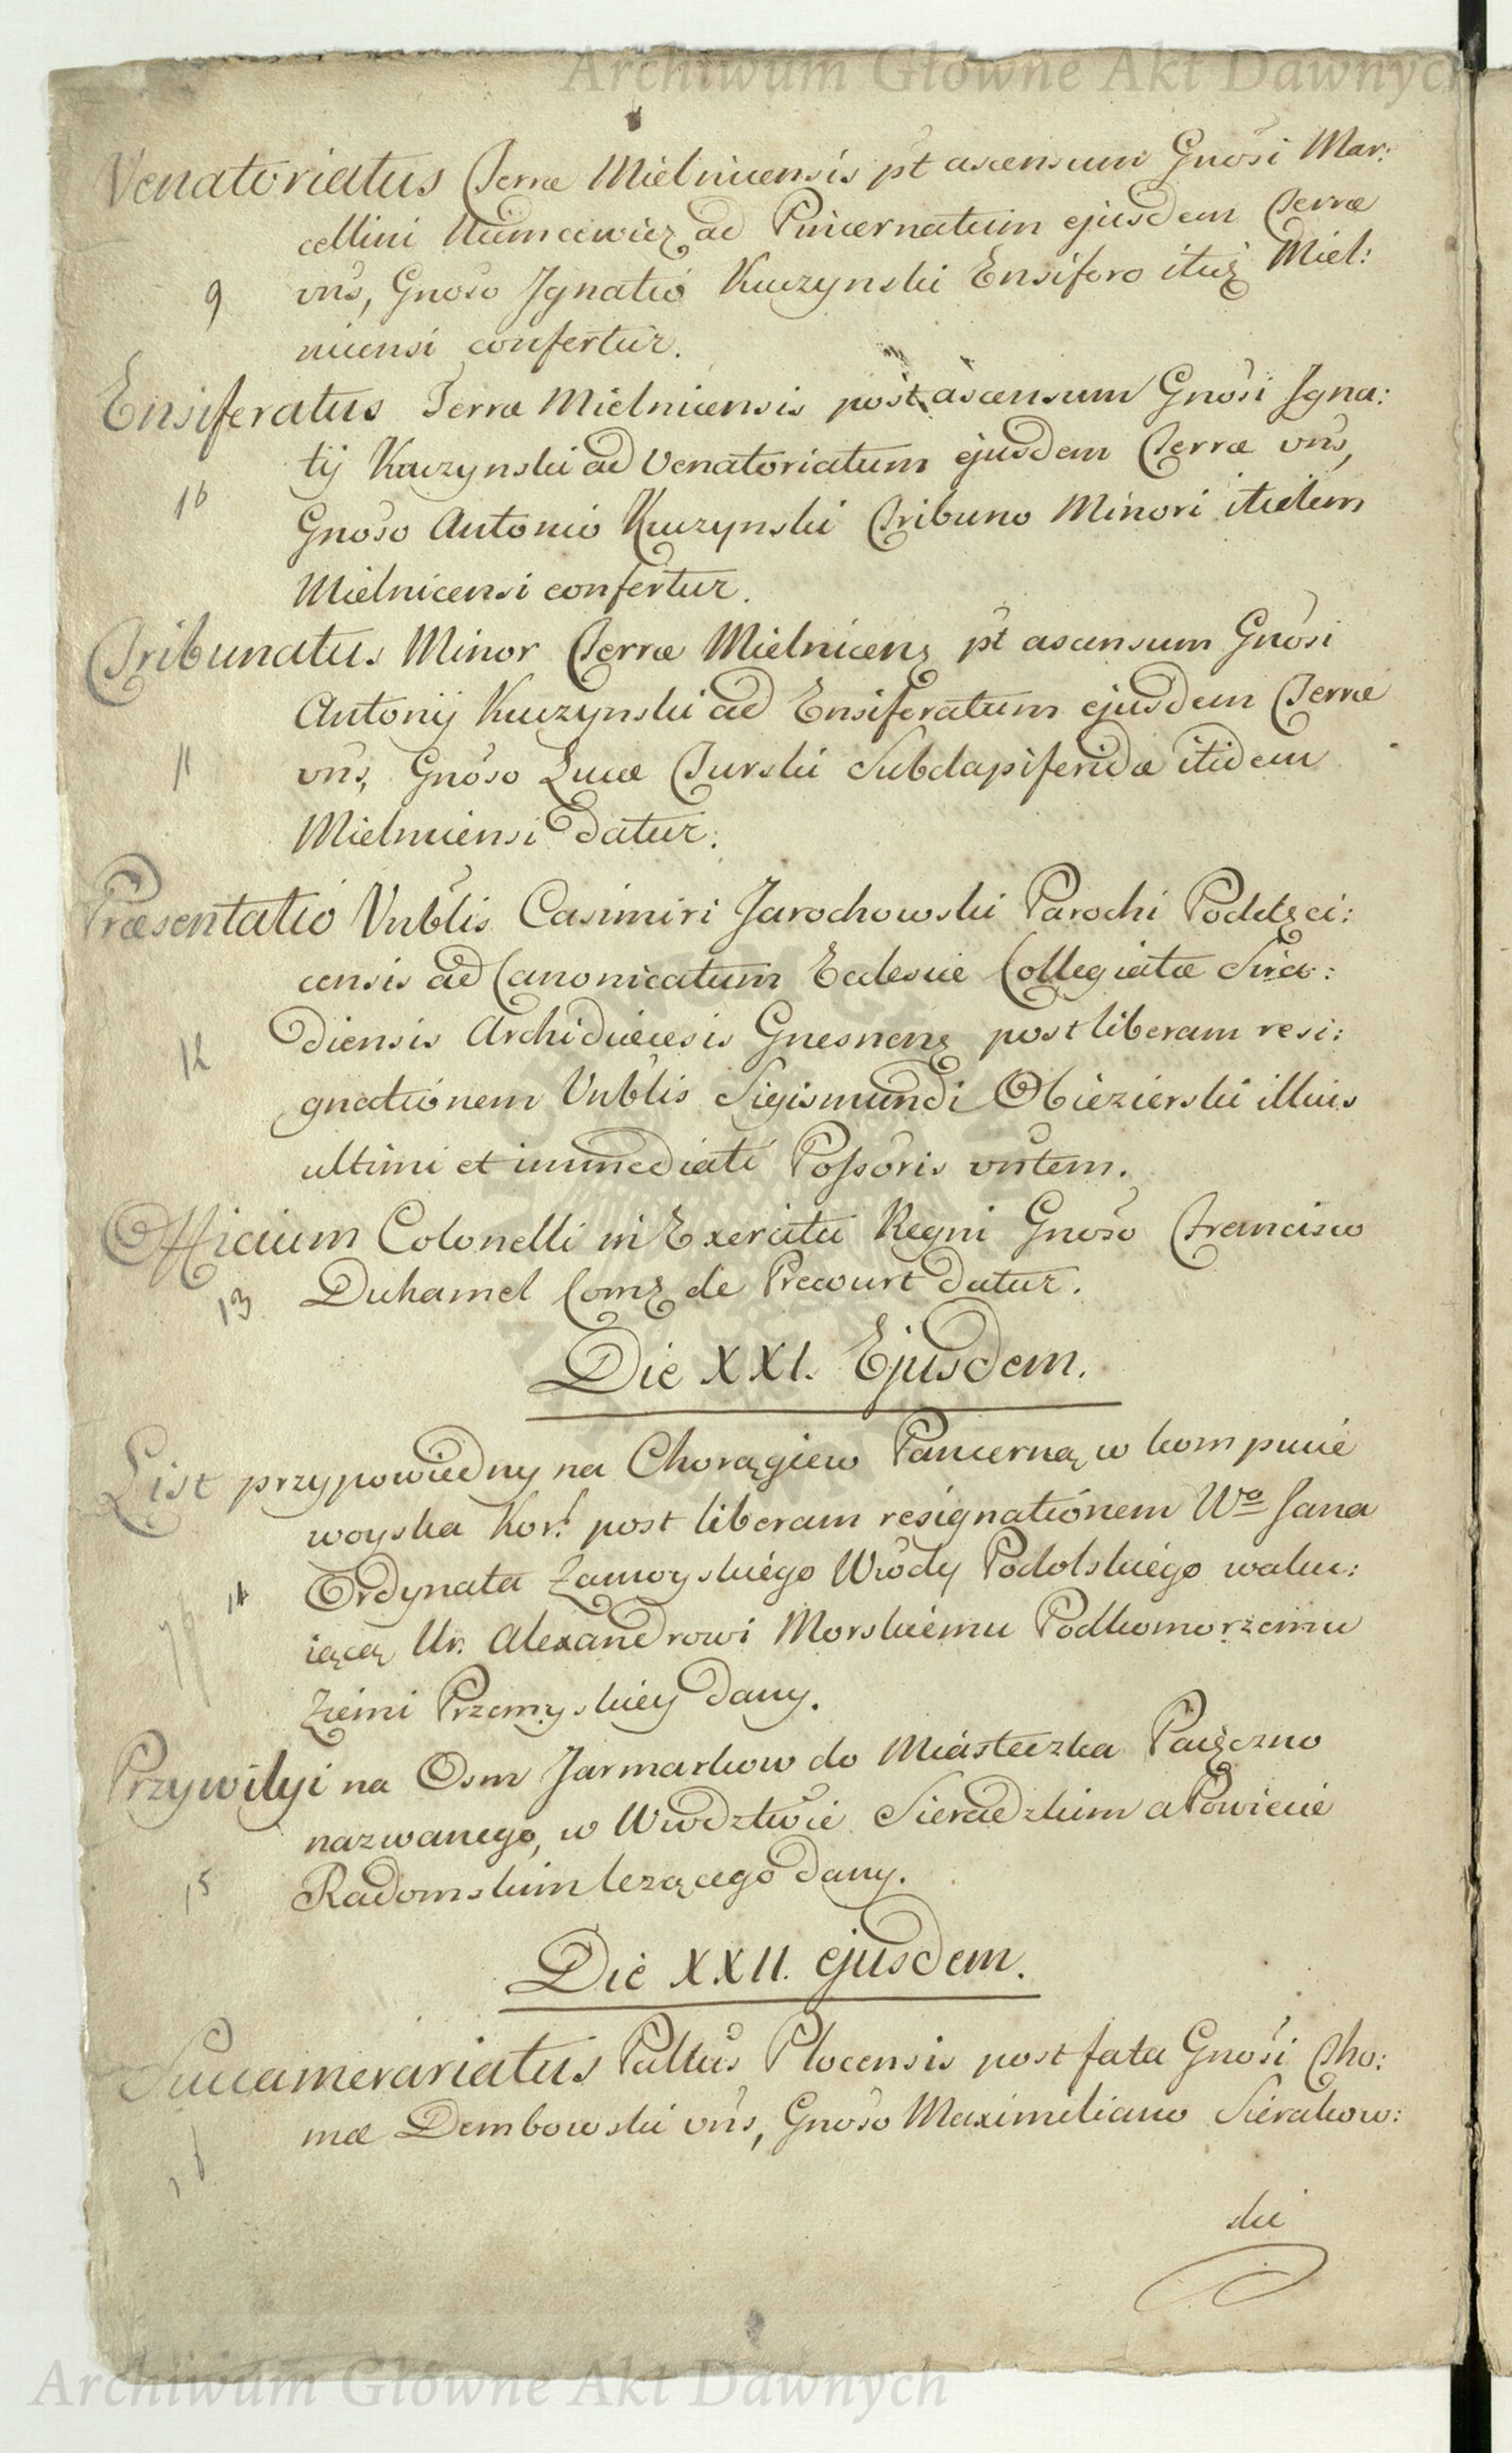 Archiwum Główne Akt Dawnych
Venatoriatus Terræ Mielnicensis pt ascensum Gnosi Mar:
cellini Niemcewicz ad Pincernatum ejusdem Terræ
9 vns, Gnoso Ignatio Kuczynski Ensifero itid Miel:
nicensi confertur.
Ensiferatus Terræ Mielnicensis post ascensum Gnosi Igna:
tij Kuczynski ad Venatoriatum ejusdem Terræ vns,
10 Gnoso Antonio Kuczynski Tribuno Minori itidem
Mielnicensi confertur.
Tribunatus Minor Terræ Mielnicens pt ascensum Gnosi
Antonij Kuczynski ad Ensiferatum ejusdem Terræ
11 vns, Gnoso Lucæ Turski Subdapiferidæ itidem
Mielnicensi datur:
Præsentatio Vnblis Casimiri Jarochowski Parochi Poddęci:
censis ad Canonicatum Ecclesiæ Collegiatæ Sira:
12 diensis Archidiœcesis Gnesnens post liberam resi:
gnationem Vnblis Sigismundi Obiezierski illius
ultimi et immediati Possoris vntem.
Officium Colonelli in Exercitu Regni Gnoso Francisco
13 Duhamel Coms de Precourt datur.
Die XXI. Ejusdem.
List przypowiedny na Chorągiew Pancerną w kompucie
woyska Kor: post liberam resignationem Wo Jana
14 Ordynata Zamoyskiego Wwody Podolskiego waku:
iącą Ur. Alexandrowi Morskiemu Podkomorzemu
Ziemi Przemyskiey dany.
Przywilyi na Osm Jarmarkow do Miasteczka Paięczno
nazwanego, w Wwodztwie Sieradzkim a Powiecie
15 Radomskim lezącego dany.
Die XXII. ejusdem.
Succamerariatus Pallus Plocensis post fata Gnosi Tho:
mæ Dembowski vns, Gnoso Maximiliano Sierakow:
ski
Archiwum Główne Akt Dawnych